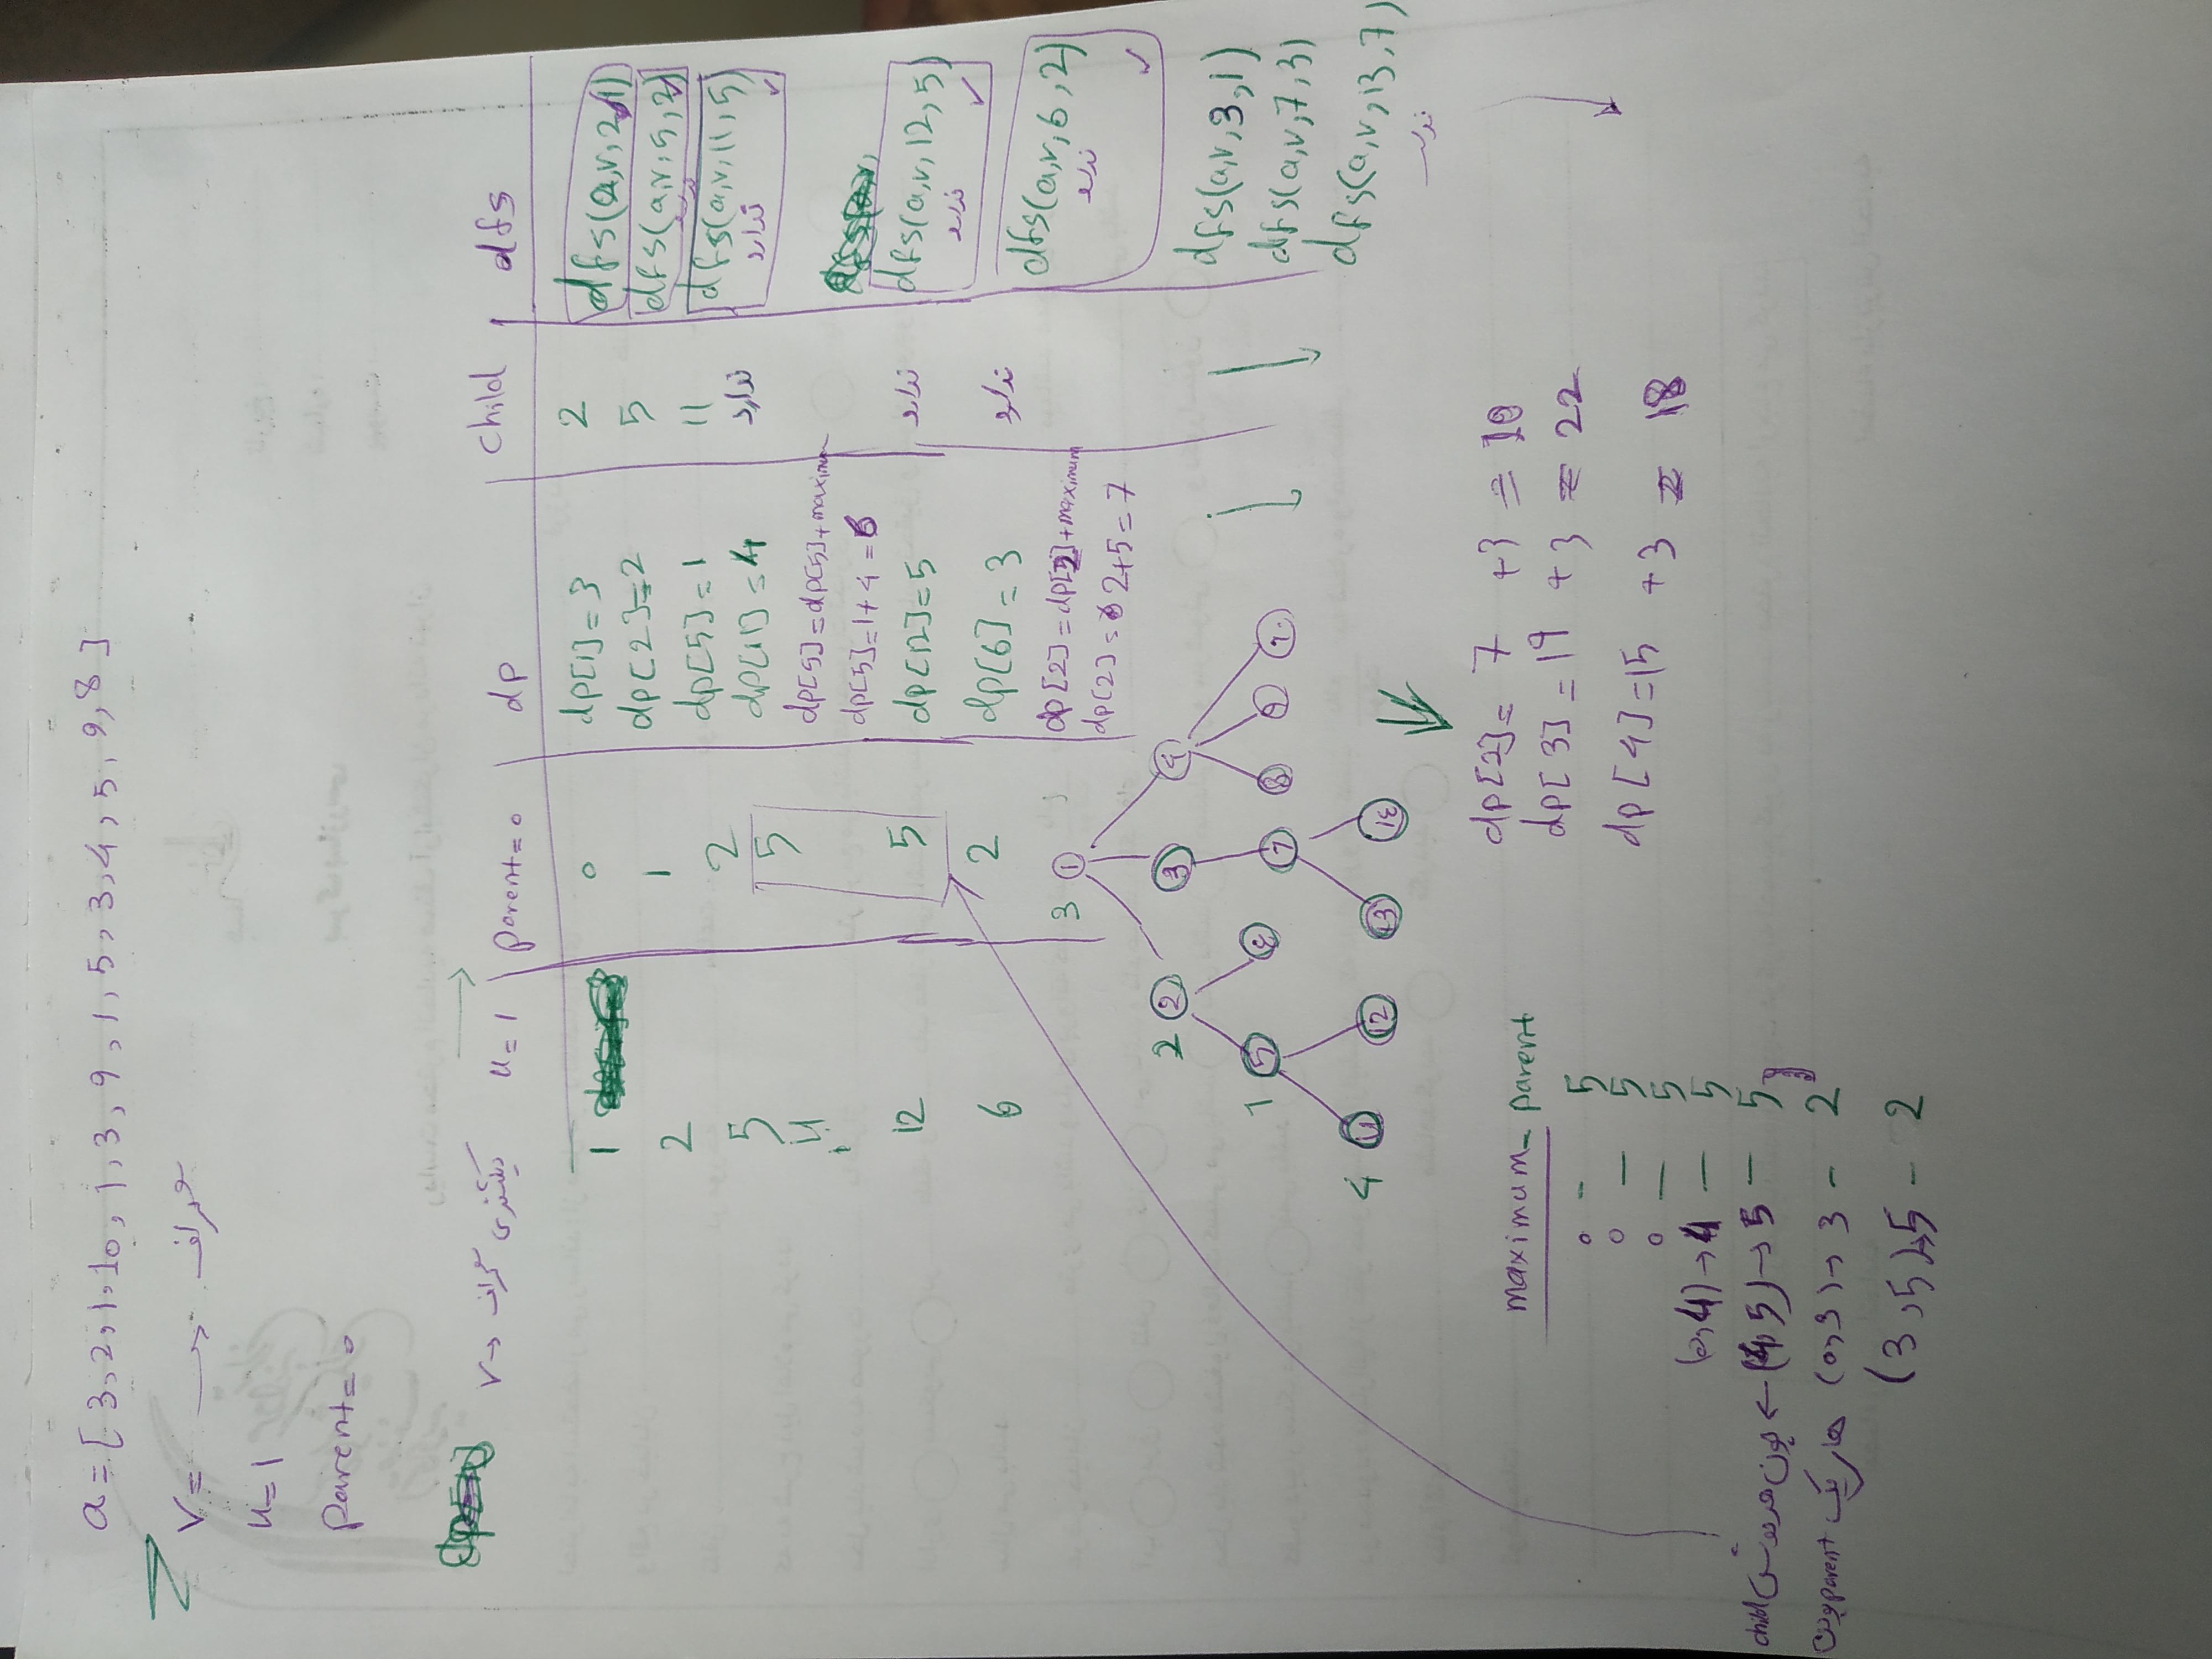 a = [3,2,1,10,1,3,9,1,5,3,4,5,9,8]
v = → گراف
u = 1
parent = 0
v → گراف دیکشنری
u = 1
parent = 0
dp
child
dfs
1
0
dp[1]=3
2
dfs(a,v,2,1)
2
1
dp[2]=2
5
dfs(a,v,5,2)
5
2
dp[5]=1
11
dfs(a,v,11,5)
ندارد
11
5
dp[11]=4
ندارد
dp[5]=dp[5]+maximum
dp[5]=1+4=6
12
5
dp[12]=5
ندارد
dfs(a,v,12,5)
ندارد
6
2
dp[6]=3
ندارد
dfs(a,v,6,2)
ندارد
dp[2]=dp[2]+maximum
dp[2]=2+5=7
dfs(a,v,3,1)
dfs(a,v,7,3)
dfs(a,v,13,7)
3 1
2 2 3 4
1 5 7 8 9
4 11 12 13 14
dp[2]=7 +3 = 10
dp[3]=19 +3 = 22
dp[4]=15 +3 = 18
maximum - parent
0 - 5
0 - 5
0 - 5
(0,4)→4 - 5
(4,5)→5 - 5
(0,3)→3 - 2
(3,5)→5 - 2
چون هر دوش child
های یک parent بودن